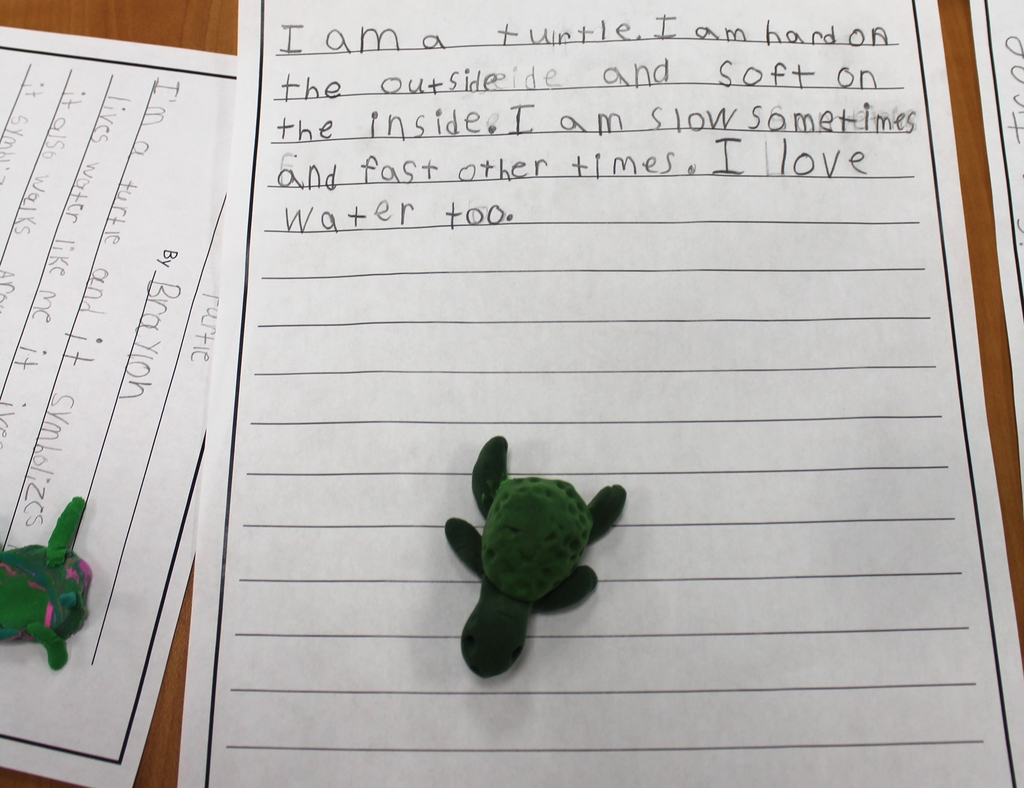 I am a turtle. I am hard on
the outsideeide and soft on
the inside. I am slow sometimes
and fast other times. I love
water too.
Turtle
By Braylon
I'm a turtle and it symbolizes
lives water like me it
it also walks